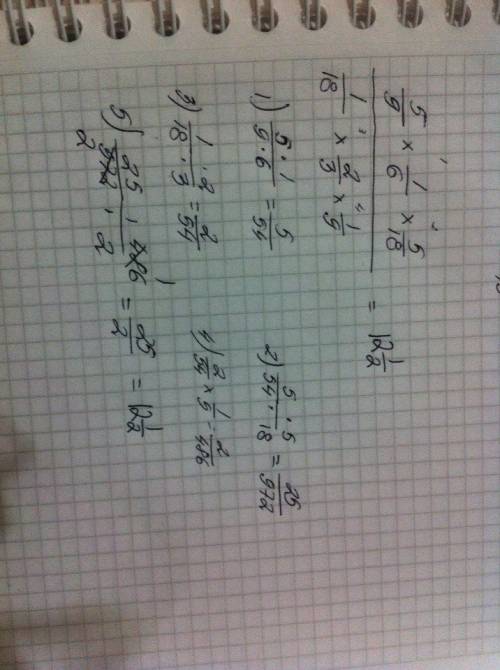 5/9 × 1/6 × 5/18
1/18 × 2/3 × 1/9
= 12 1/2
1) 5·1 / 9·6 = 5/54
2) 5·5 / 54·18 = 25/972
3) 1·2 / 18·3 = 2/54
4) 2/54 × 1/9 = 2/486
5) 25 · 486 1 / 972 2 · 2 = 25/2 = 12 1/2